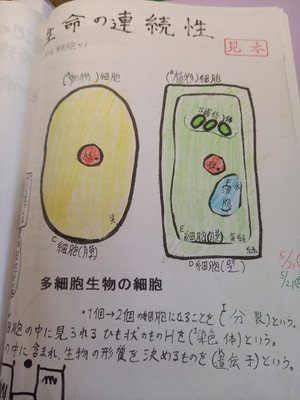 生命の連続性
見本
(動物)細胞
(植物)細胞
核
核
液胞
C 細胞(膜)
E 細胞(膜)
D 細胞(壁)
多細胞生物の細胞
・1個→2個の細胞になることを(分裂)という。
細胞の中に見られるひも状のものHを(染色体)という。
の中に含まれ生物の形質を決めるものを(遺伝子)という。
5/21
5/21